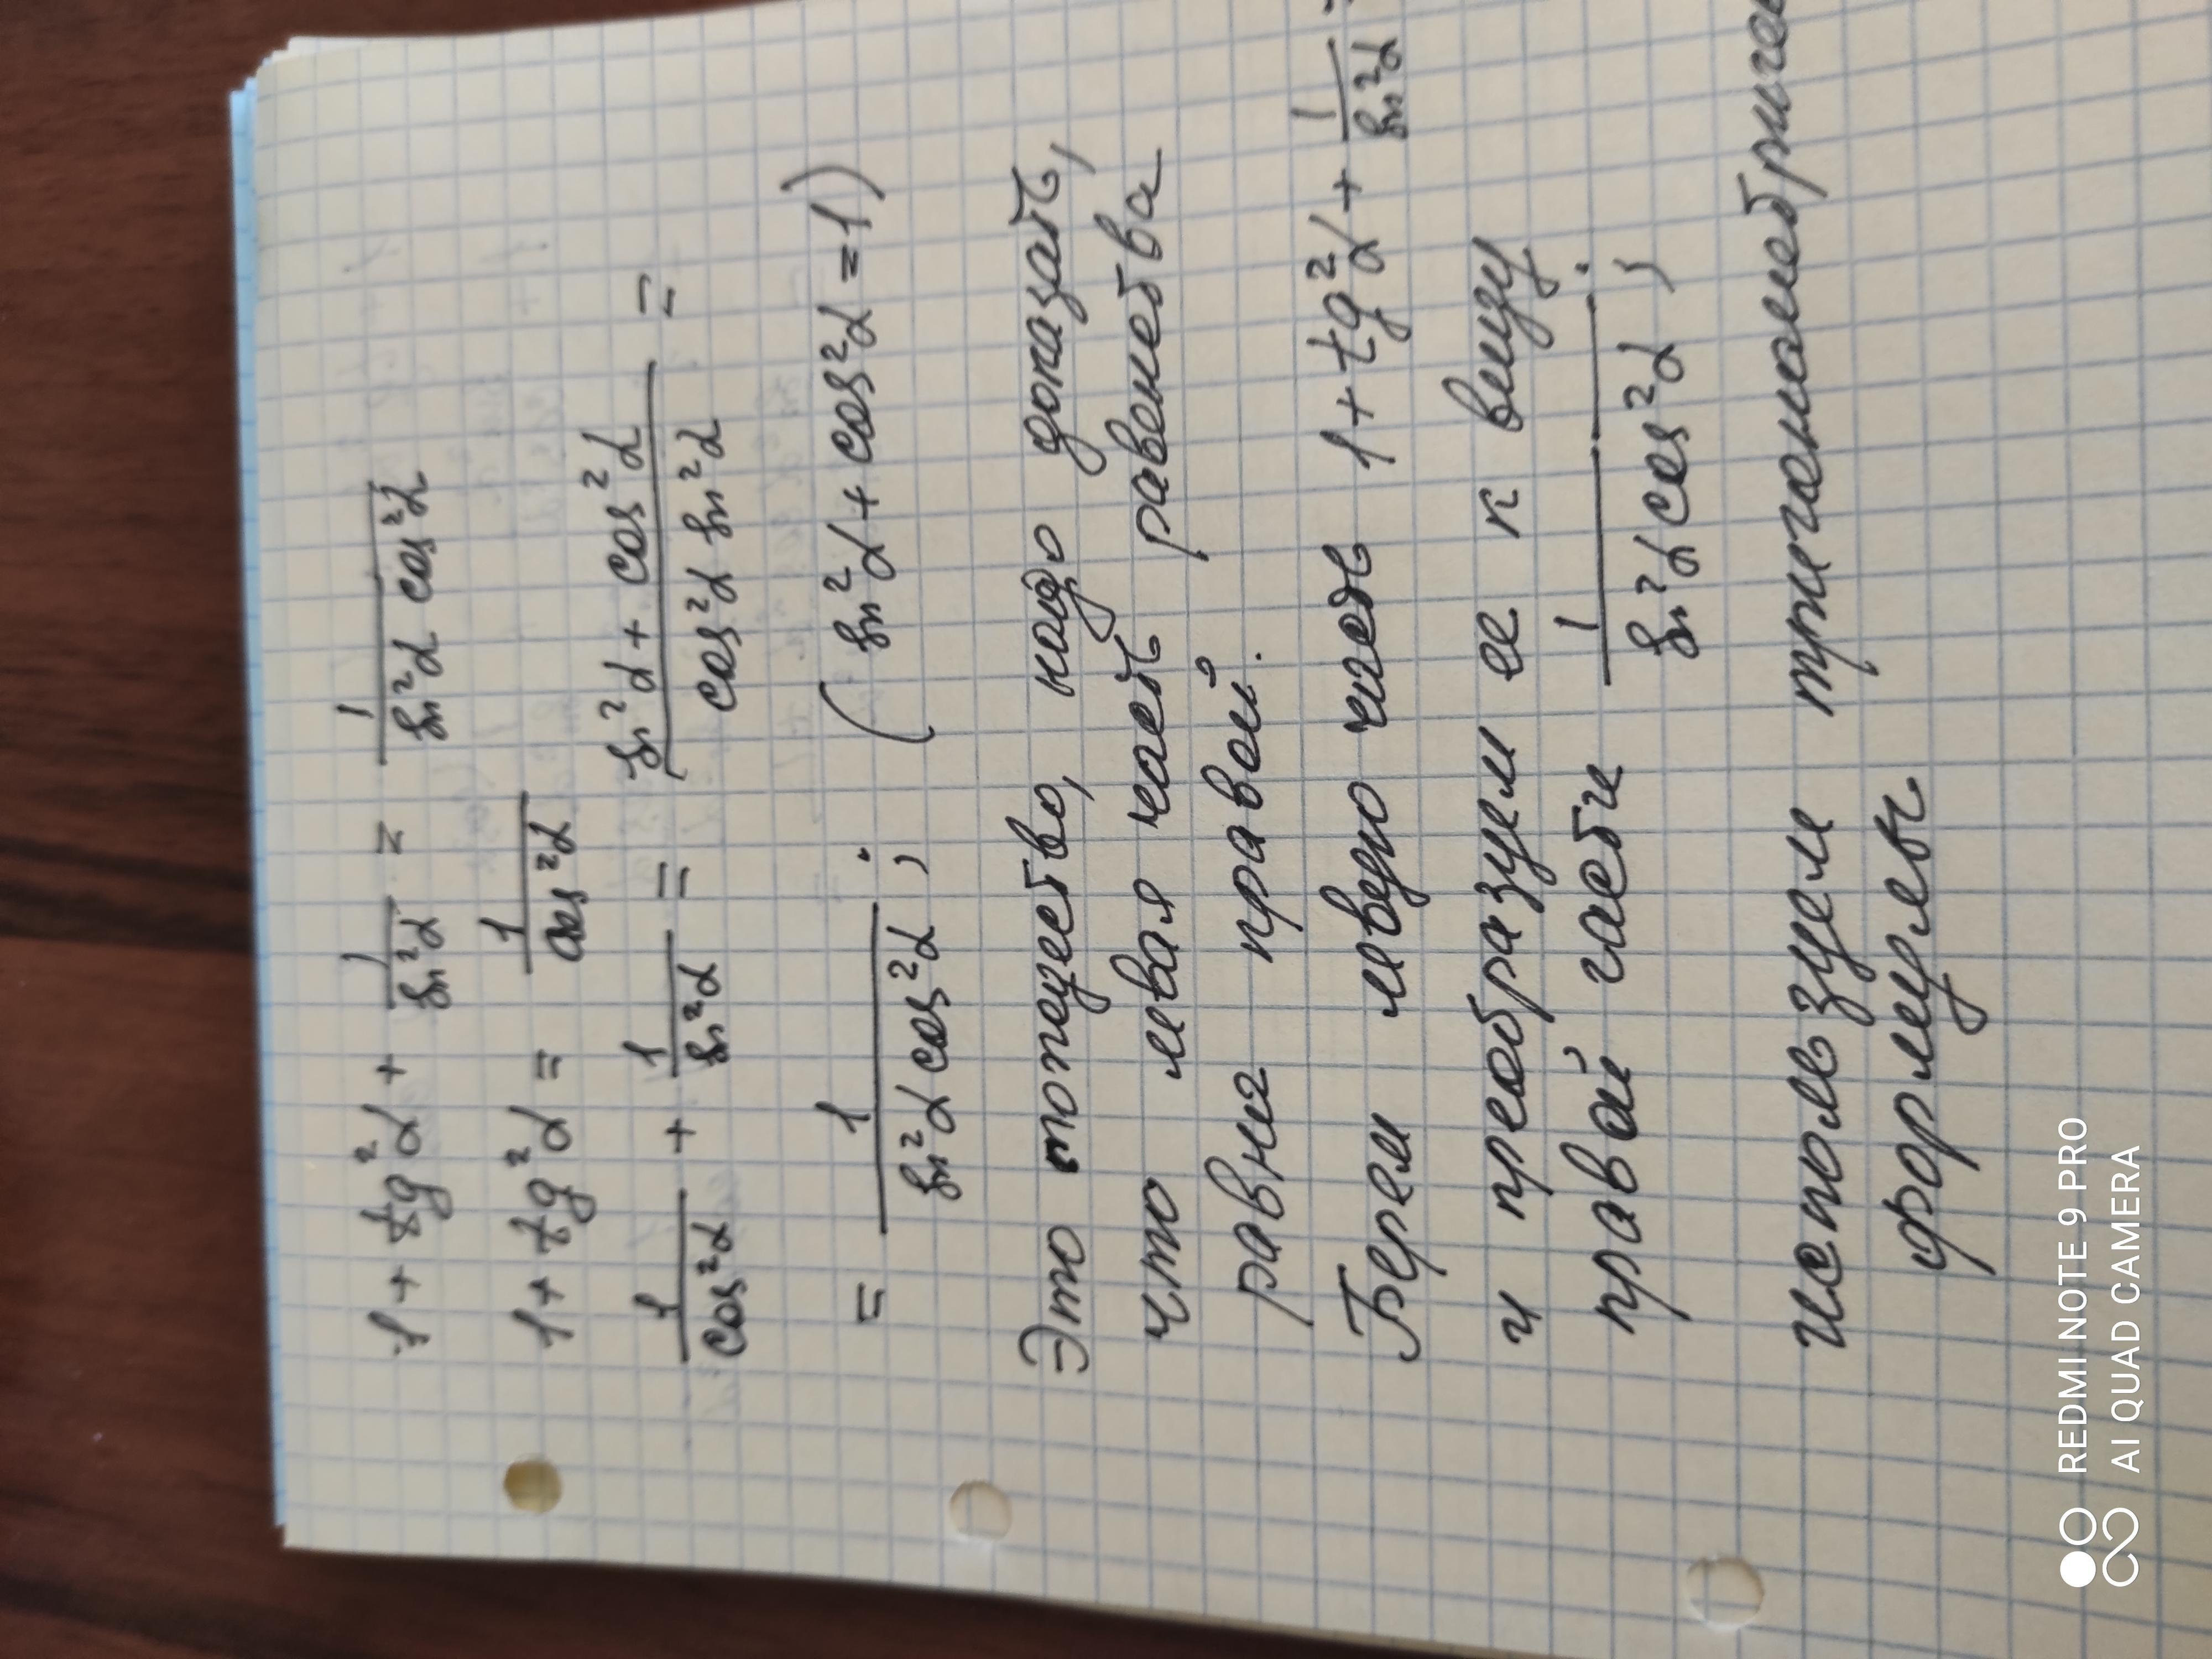 1 + tg²α + 1/sin²α = 1/(sin²α cos²α)
1 + tg²α = 1/cos²α
1/cos²α + 1/sin²α = (sin²α + cos²α)/(cos²α sin²α) =
= 1/(sin²α cos²α); (sin²α + cos²α = 1)
Это тождество, надо доказать,
что левая часть равенства
равна правой.
Берем левую часть 1 + tg²α + 1/sin²α
и преобразуем ее к виду
правой части 1/(sin²α cos²α);
используем
формулы
REDMI NOTE 9 PRO
AI QUAD CAMERA